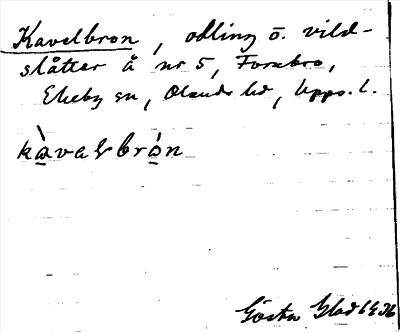 Kavelbron, odling o. vild-
slåtter å nr 5, Forsbro,
Ekeby sn, Olands hd, Upps. l.
kàvalbrón
Gösta